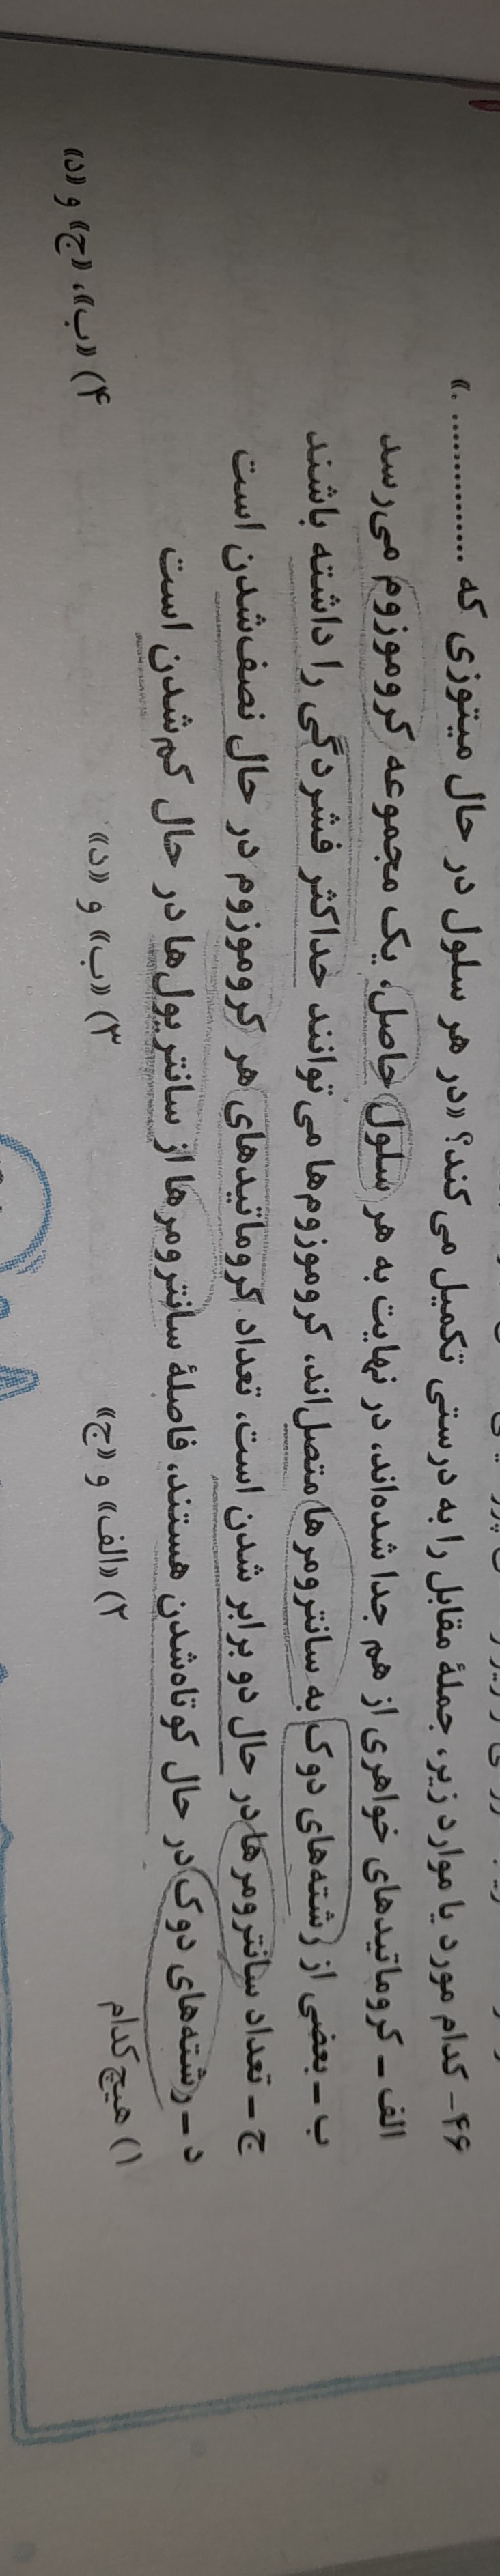 ۴۶- کدام مورد یا موارد زیر، جملهٔ مقابل را به درستی تکمیل می‌کند؟ «در هر سلول در حال میتوزی که ............... .»
الف ـ کروماتیدهای خواهری از هم جدا شده‌اند، در نهایت به هر سلول حاصل، یک مجموعه کروموزوم می‌رسد
ب ـ بعضی از رشته‌های دوک به سانترومرها متصل‌اند، کروموزوم‌ها می‌توانند حداکثر فشردگی را داشته باشند
ج ـ تعداد سانترومرها در حال دو برابر شدن است، تعداد کروماتیدهای هر کروموزوم در حال نصف‌شدن است
د ـ رشته‌های دوک در حال کوتاه‌شدن هستند، فاصلهٔ سانترومرها از سانتریول‌ها در حال کم‌شدن است
۱) هیچ کدام ۲) «الف» و «ج» ۳) «ب» و «د» ۴) «ب»، «ج» و «د»